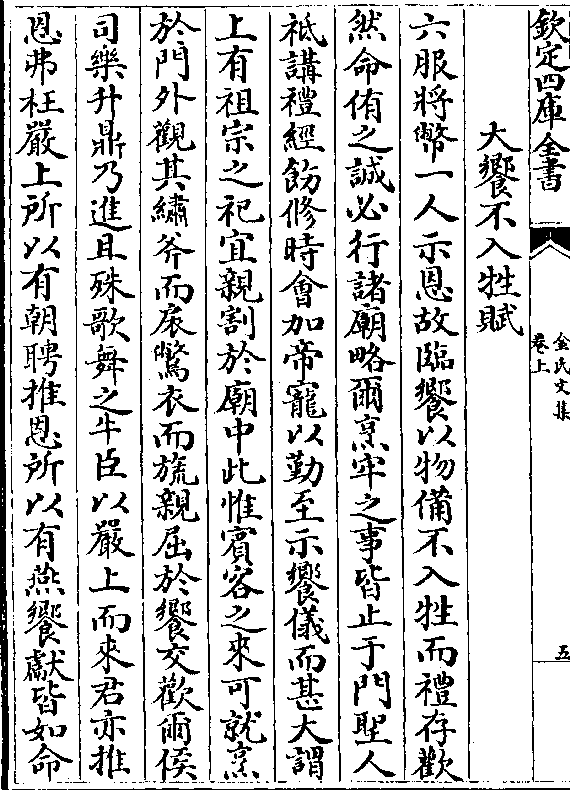 欽定四庫全書
金氏文集
卷上
五
大饗不入牲賦
六服將幣一人示恩故臨饗以物備不入牲而禮存歡
然命侑之誠必行諸廟略爾烹牢之事皆止于門聖人
祗講禮經飭修時會加帝寵以勤至示饗儀而甚大謂
上有祖宗之祀宜親割於廟中此惟賓客之來可就烹
於門外觀其繡斧而扆鷩衣而旒親屈於饗交歡爾侯
司樂升鼎乃進且殊歌舞之牛臣以嚴上而來君亦推
恩弗枉嚴上所以有朝聘推恩所以有燕饗獻皆如命